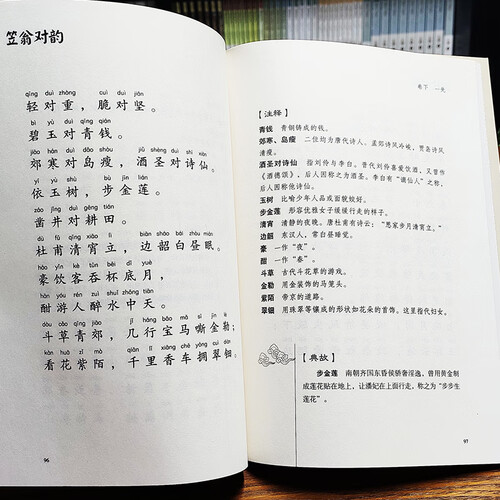 笠翁对韵
qīng duì zhòng cuì duì jiān
轻对重，脆对坚。
bì yù duì qīng qián
碧玉对青钱。
jiāo hán duì dǎo shòu jiǔ shèng duì shī xiān
郊寒对岛瘦，酒圣对诗仙。
yī yù shù bù jīn lián
依玉树，步金莲。
záo jǐng duì gēng tián
凿井对耕田。
dù fǔ qīng xiāo lì biān sháo bái zhòu mián
杜甫清宵立，边韶白昼眠。
háo yǐn kè tūn bēi dǐ yuè
豪饮客吞杯底月，
hān yóu rén zuì shuǐ zhōng tiān
酣游人醉水中天。
dòu cǎo qīng jiāo jǐ háng bǎo mǎ sī jīn lè
斗草青郊，几行宝马嘶金勒；
kàn huā zǐ mò qiān lǐ xiāng chē yōng cuì diàn
看花紫陌，千里香车拥翠钿。
96
卷下 一先
【注释】
青钱 青铜铸成的钱。
郊寒、岛瘦 二位均为唐代诗人。孟郊诗风冷峻，贾岛诗风
清瘦。
酒圣对诗仙 指刘伶与李白。晋代刘伶喜爱饮酒，又曾作
《酒德颂》，后人因称之为酒圣。李白有“谪仙人”之称，
后人因称他诗仙。
玉树 比喻少年人品或面貌姣好。
步金莲 形容优雅女子缓缓行走的样子。
清宵 清静的夜晚。唐杜甫有诗云：“思家步月清宵立。”
边韶 东汉人，常白昼睡觉。
豪 一作“夜”。
酣 一作“春”。
斗草 古代斗花草的游戏。
金勒 用金装饰的马笼头。
紫陌 帝京的道路。
翠钿 用珠翠等镶成的形状如花朵的首饰。这里指代妇女。
【典故】
步金莲 南朝齐国东昏侯骄奢淫逸，曾用黄金制
成莲花贴在地上，让潘妃在上面行走，称之为“步步生
莲花”。
97